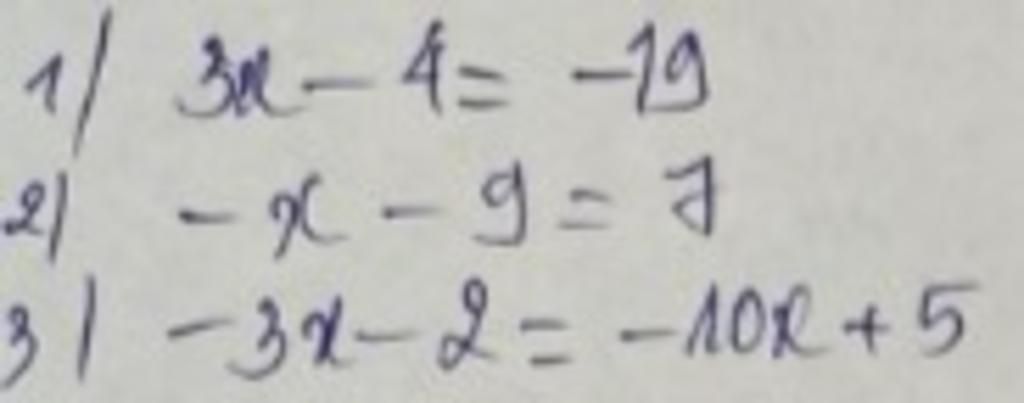 1/ 3x - 4 = -19
2/ -x - 9 = 7
3/ -3x - 2 = -10x + 5